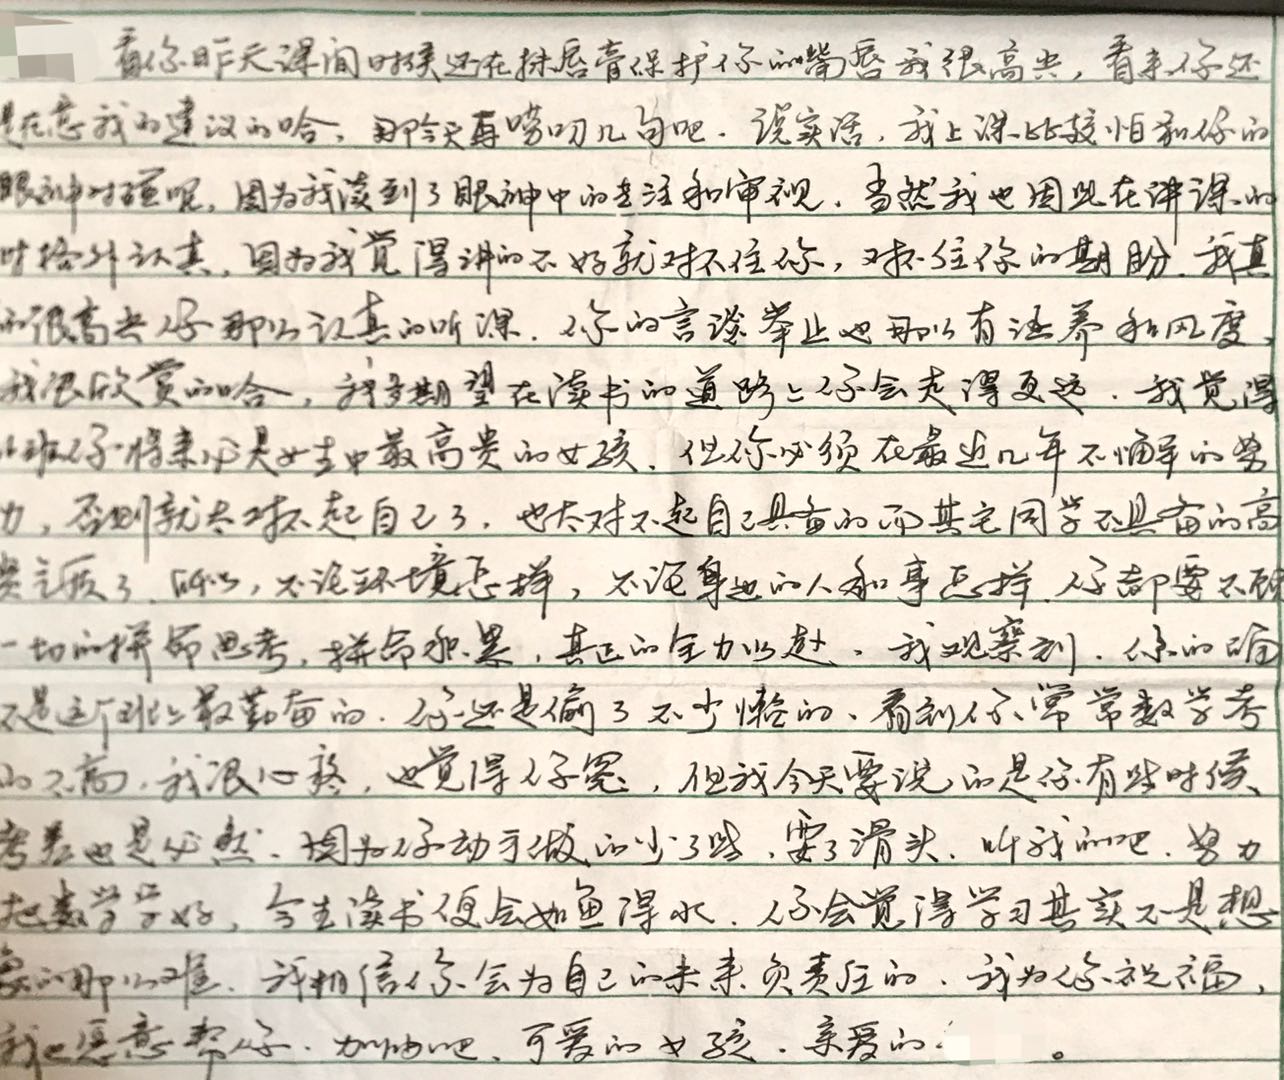 看你昨天课间时候还在抹唇膏保护你的嘴唇我很高兴，看来你还
是在意我的建议的哈，那今天再唠叨几句吧．说实话，我上课比较怕和你的
眼神对碰呢，因为我读到了眼神中的专注和审视．当然我也因此在讲课的
时格外认真，因为我觉得讲的不好就对不住你，对不住你的期盼．我真
的很高兴你那么认真的听课．你的言谈举止也那么有涵养和风度，
我很欣赏的哈，我多期望在读书的道路上你会走得更远．我觉得
班你将来必是女生中最高贵的女孩．但你必须在最近几年不懈的努
力，否则就太对不起自己了．也太对不起自己具备的而其它同学不具备的高
贵气质了．所以，不论环境怎样，不论身边的人和事怎样．你都要不顾
一切的拼命思考，拼命积累，真正的全力以赴．我观察到．你的确
不是这个班上最勤奋的．你还是偷了不少懒的、看到你常常数学考
的不高．我很心疼，也觉得你冤，但我今天要说的是你有些时候、
考差也是必然．因为你动手做的少了些，耍了滑头．听我的吧．努力
把数学学好，今生读书便会如鱼得水．你会觉得学习其实不是想
象的那么难．我相信你会为自己的未来负责任的．我为你祝福，
我也愿意帮你．加油吧、可爱的女孩．亲爱的 。